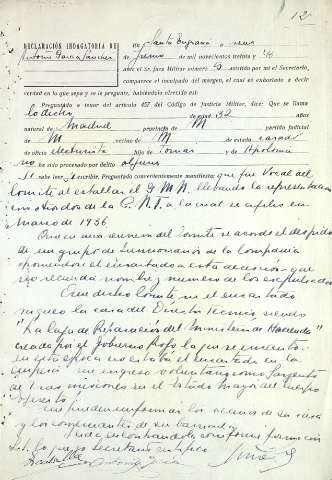 12
DECLARACIÓN INDAGATORIA DE En Santo Engracia a seis
Antonio García Sánchez de Junio de mil novecientos treinta y
ante el Sr. Juez Militar número 5 asistido por mi el Secretario,
comparece el inculpado del margen, el cual es exhortado a decir
verdad en lo que sepa y se le pregunte, habiéndolo ofrecido así:
Preguntado a tenor del artículo 457 del Código de Justicia Militar, dice: Que se llama
lo dicho de edad 32 años
natural de Madrid provincia de M partido judicial
de M vecino de M de estado casado
de oficio electricista hijo de Tomas y de Apolonia
no ha sido procesado por delito alguno
Si sabe leer y escribir. Preguntado convenientemente manifiesta: que fue Vocal del
Comité al estallar el G M N. llebando la representacion
de la C. N. T. a la cual se afilio en
Marzo de 1936
Que en una reunion del Comité se acordó el despido
de un grupo de funcionarios de la Compañia
oponiendose el encartado a esta decision que
no recuerda nombre y numero de los expulsados
Que dicho Comité, ni el encartado
la casa del Director tecnico, siendo
"La Caja de Reparacion del Ministerio de Hacienda"
creada por el Gobierno Rojo la que se incauto.
en esta epoca no estaba el encartado en la
empresa que ingreso voluntario como Sargento
de transmisiones en el Estado Mayor del Cuerpo

Que pueden informar los vecinos de su casa
y los comerciantes de su barriada
conforme firma con
S.S. lo que yo Secretario certifico
Antonio García